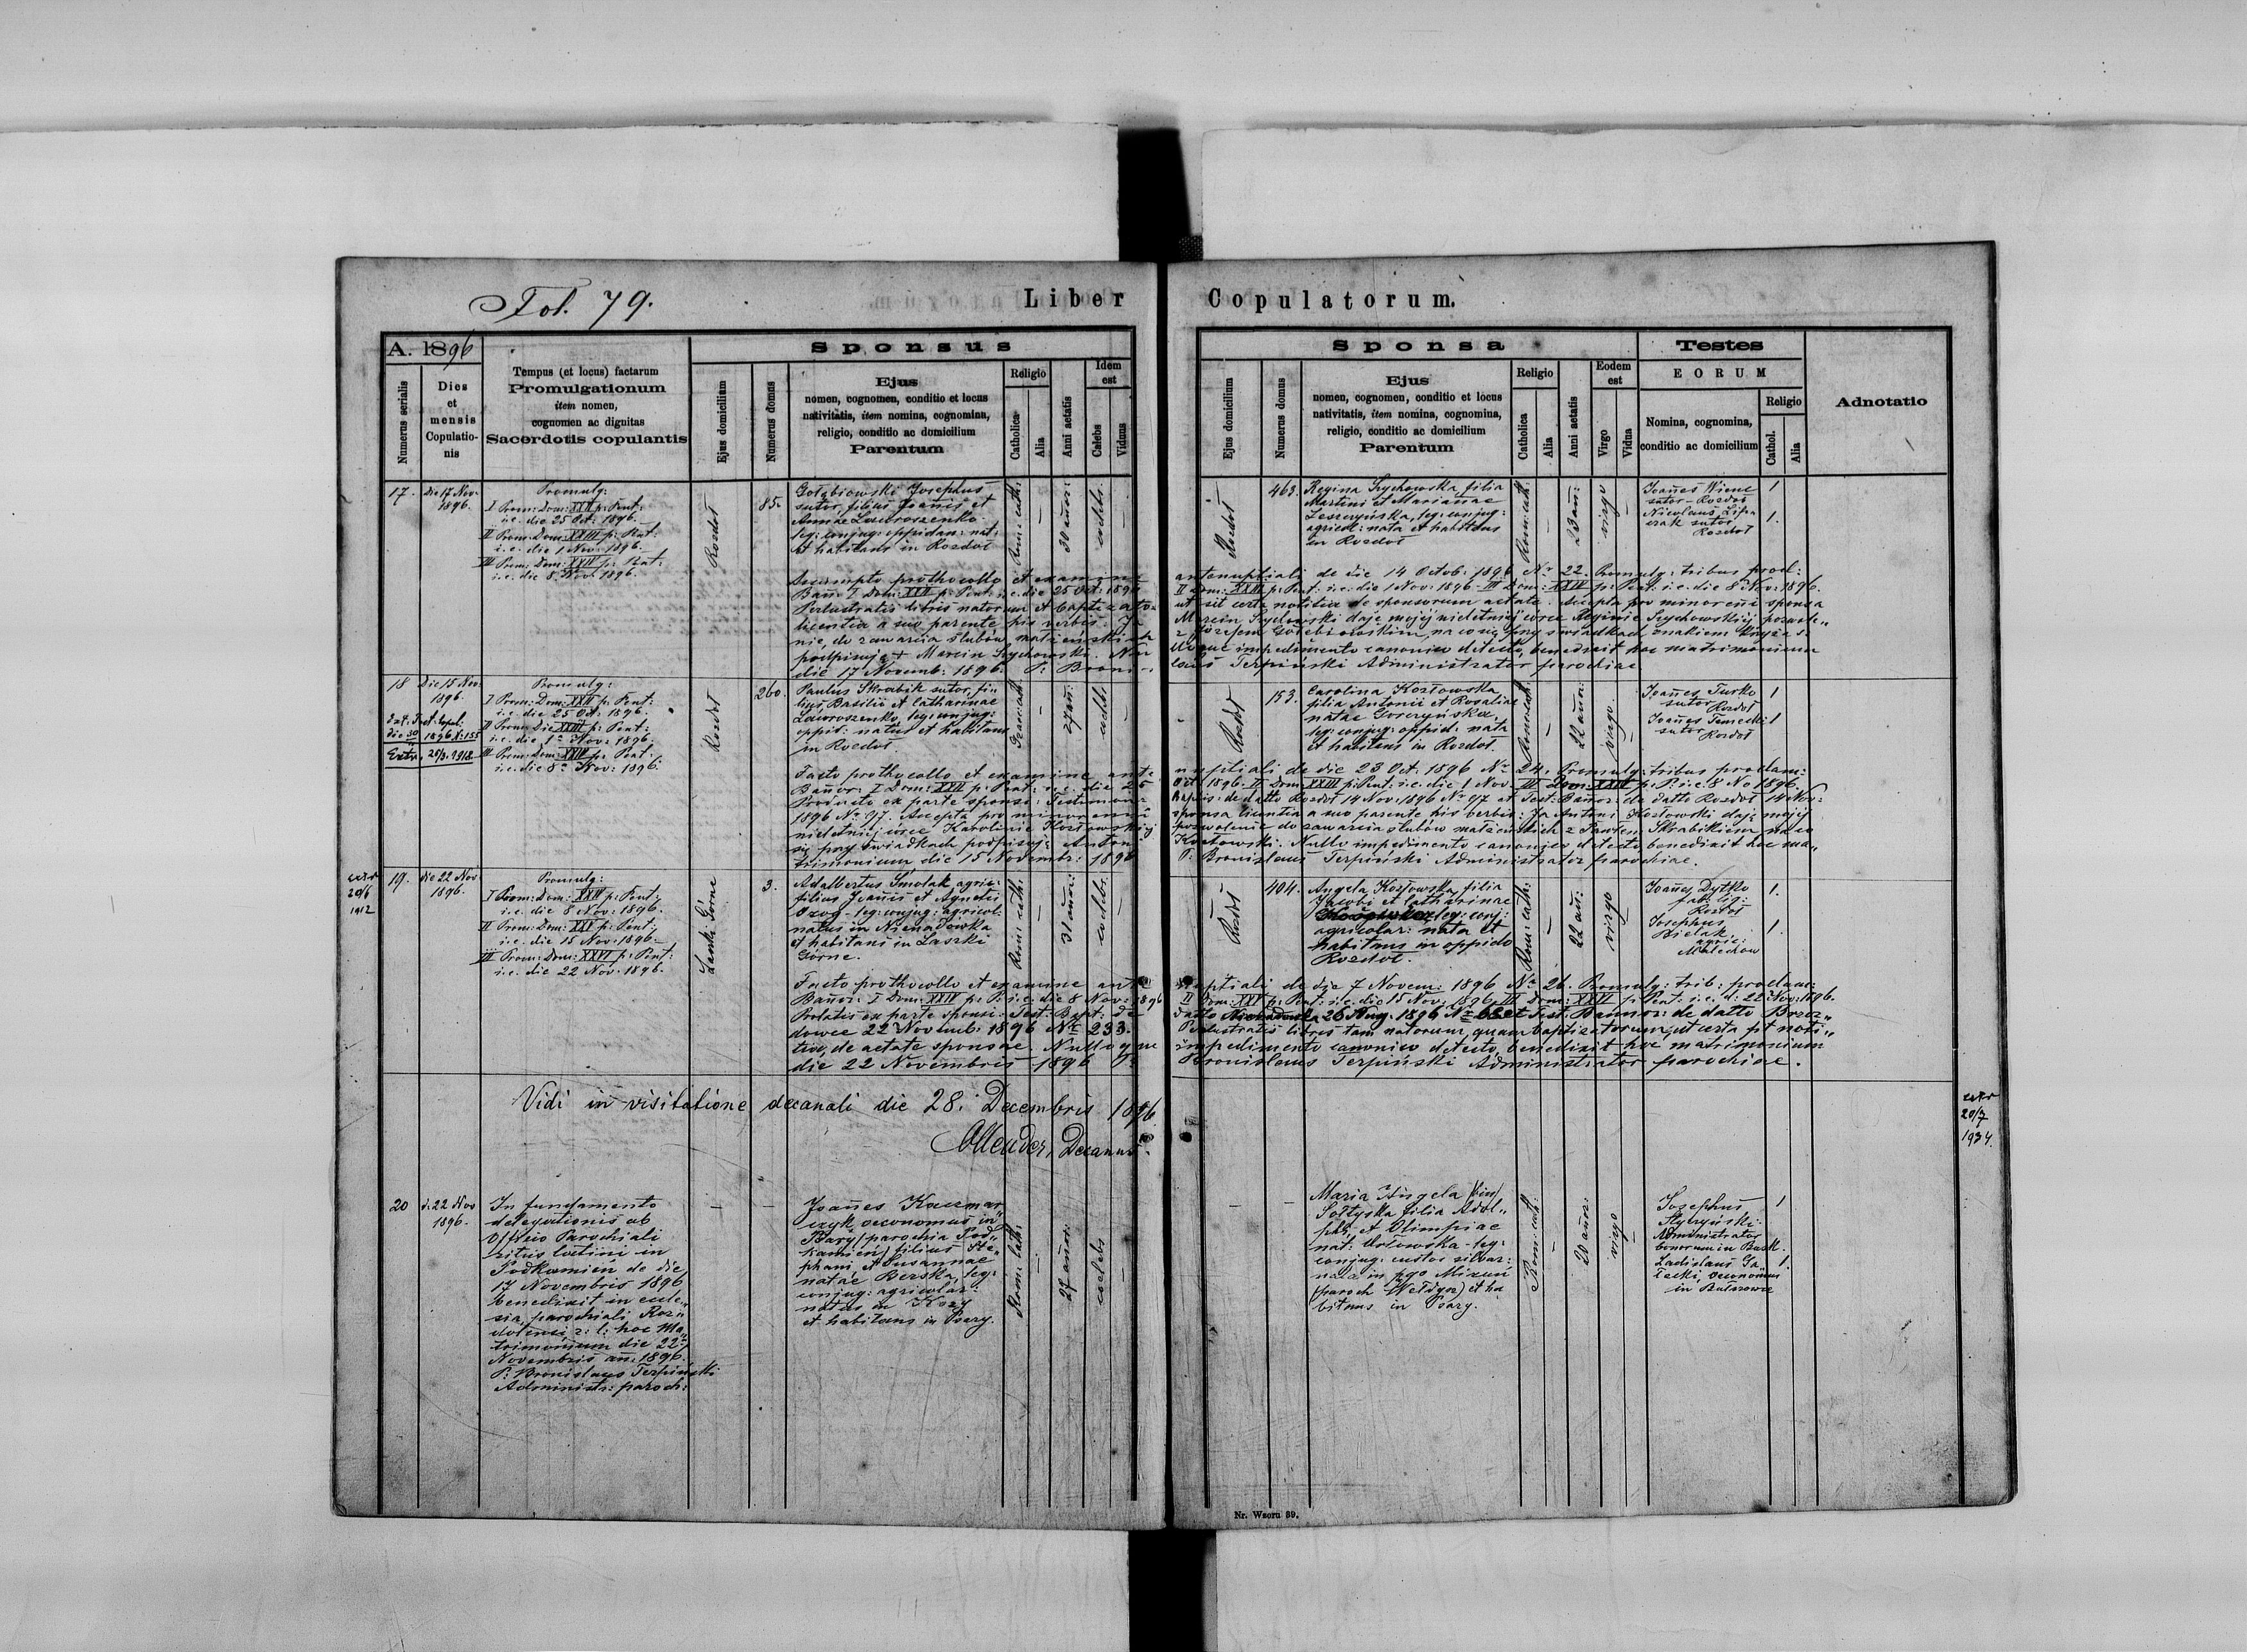 Fol. 79.
Liber Copulatorum.
A. 1896
Numerus serialis
Dies et mensis Copulatio-nis
Tempus (et locus) factarum
Promulgationum
item nomen,
cognomen ac dignitas
Sacerdotis copulantis
Sponsus
Ejus domicilium
Numerus domus
Ejus
nomen, cognomen, conditio et locus
nativitatis, item nomina, cognomina,
religio, conditio ac domicilium
Parentum
Religio
Catholica
Alia
Anni aetatis
Idem est
Calebs
Viduus
Sponsa
Ejus domicilium
Numerus domus
Ejus
nomen, cognomen, conditio et locus
nativitatis, item nomina, cognomina,
religio, conditio ac domicilium
Parentum
Religio
Catholica
Alia
Anni aetatis
Eodem est
Virgo
Vidua
Testes
EORUM
Nomina, cognomina,
conditio ac domicilium
Religio
Cathol.
Alia
Adnotatio
17.
die 17 Nov.
1896.
Promulg:
I Prom: Dom: XXII p: Pent:
i.e. die 25 Oct: 1896.
II Prom: Dom: XXIII p: Pent:
i.e. die 1 Nov: 1896.
III Prom: Dom: XXIV p: Pent:
i.e. die 8. Nov: 1896.
Rozdoł
85.
Gołębiowski Josephus
sutor, filius Joañis et
Annae Lawroszenko
leg: conjug: oppidan: nat:
et habitans in Rozdoł
Rom: cath:
30 añor:
coelebs
Rozdoł
463.
Regina Sychowska filia
Martini et Mariañae
Leszczyńska, leg: conjug:
agricol: nata et habitans
in Rozdoł
Rom: cath:
23 añ:
virgo
Joañes Wiene
sutor - Rozdoł
Nicolaus Lipa
czak sutor
Rozdoł
1
1.
Assumpto prothocollo et examine antenuptiali de die 14 Octob: 1896 Nr 22. Promulg: tribus procl:
Bañ: I Dom: XXII p: Pent: i.e. die 25 Oct: 1896 II Dom: XXIII p: Pent: i.e. die 1 Nov: 1896 - III Dom: XXIV p: Pent: i.e. die 8 Nov: 1896.
Perlustratis libris natorum et baptizato- ut sit certa notitia de sponsorum aetate. Accepta pro minoreñi sponsa
licentia a suo parente his verbis. Ja Marcin Sychowski daję mojej nieletniej córce Reginie Sychowskiej pozwole„
nie, do zawarcia ślubów małżeńskich z Józefem Gołębiowskim, na co się przy świadkach znakiem krzyża s.
podpisuję + Marcin Sychowski. Nul loque impedimento canonico detecto, benedixit hoc matrimonium
die 17 Novemb: 1896. P: Broni- slaus Terpiński Administrator parochiae
18
Die 15 Nov:
1896.
Extr. 25/3. 1918.
Promulg:
I Prom: Dom: XXII p: Pent:
i.e. die 25 Oct: 1896.
II Prom: Die XXIII p: Pent:
i.e. die 1ª Nov: 1896.
III Prom: Dom: XXIV p: Pent:
i.e. die 8ª Nov: 1896.
Rozdoł
260.
Paulus Skrabik sutor, fi„
lius Basilii et Catharinae
Lawroszenko, leg: conjug:
oppid: natus et habitans
in Rozdoł
27 añ:
coelebs
Rozdoł
153.
Carolina Kozłowska
filia Antonii et Rosaliae
natae Gorczyńska,
leg: conjug: oppid: nata
et habitans in Rozdoł.
Rom: cath:
22 añor:
virgo
Joañes Turko
sutor
Rozdoł
Joañes Temecki
sutor
Rozdoł
1
1
Facto prothocollo et examine ante nuptiali de die 23 Oct: 1896 Nr 24. Promulg: tribus proclam:
Bañor: I Dom: XXII p: Pent: i.e. die 25 Oct: 1896. II Dom: XXIII p: Pent: i.e. die 1 Nov: III Dom: XXIV p: P: i.e. 8 No 1896.
Producto ex parte sponsi: Testimon: Baptis: de datto Rozdoł 14 Nov: 1896 Nr 97 et Test: Bañor: de datto Rozdoł 14 Nov:
1896 Nr 97. Accepta pro minoreñi sponsa licentia a suo parente his verbis: Ja Antoni Kozłowski daję mojej
nieletniej córce Karolinie Kozłowskiej pozwolenie do zawarcia ślubów małżeńskich z Pawłem Skrabikiem na co
się przy świadkach podpisuję: Antoni Kozłowski. Nullo impedimento canonico detecto benedixit hoc ma„
trimonium die 15 Novembr: 1896 P: Bronislaus Terpiński Administrator parochiae.
extr
20/6
1912
19.
die 22 Nov:
1896.
Promulg:
I Prom: Dom: XXIV p: Pent:
i.e. die 8 Nov: 1896.
II Prom: Dom: XXV p: Pent:
i.e. die 15 Nov: 1896.
III Prom: Dom: XXVI p: Pent:
i.e. die 22 Nov. 1896.
Łaszki Górne
3.
Adalbertus Smolak, agric:
filius Joañis et Agnetis
Ozog - leg: conjug: agricol:
natus in Nienadowka
et habitans in Łaszki
Górne.
Rom: cath:
31 añor:
coelebs
Rozdoł
404.
Angela Kozłowska, filia
Jacobi et Catharinae
leg: conj:
agricolar: nata et
habitans in oppido
Rozdoł.
Rom: cath:
22 añ:
virgo
Joañes Dytko
Rozdoł
Josephus
Bielak
agric:
Malechow
1.
1.
Facto prothocollo et examine ante nuptiali de die 7 Novem: 1896 Nr 26. Promulg: trib: proclam:
Bañor: I Dom: XXIV p: P: i.e. die 8 Nov: 1896 II Dom: XXV p: Pent: i.e. die 15 Nov: 1896, III Dom: XXVI p: Pent: i.e. d: 22 Nov: 1896.
Prolatis ex parte sponsi: Test: Bapt: de datto Nienadowka 26 Aug: 1896 Nr 68 et Test Bañor: de datto Brzoz„
dowce 22 Novemb: 1896 Nr 233. Perlustratis libris tam natorum, quam baptizatorum, ut certa fit noti„
tia, de aetate sponsae. Nulloque impedimento canonico detecto, benedixit hoc matrimonium
die 22 Novembris 1896 P: Bronislaus Terpiński Administrator parochiae.
Vidi in visitatione decanali die 28. Decembris 1896.
Decanus.
extr
20/7
1934.
20
d. 22 Nov
1896.
In fundamento
delegationis ab
Officio Parochiali
ritus latini in
Podkamień de die
17 Novembris 1896
benedixit in eccle„
sia, parochiali Roz„
dolensi, r: l: hoc Ma„
trimonium die 22ª
Novembris añ: 1896.
P: Bronislaus Terpiński
Administr: paroch:
Joañes Kaczmar„
czyk, oeconomus in
Psary (parochia Pod„
kamień) filius Ste„
phani, et Susannae
natae Berska, leg:
conjug: agricolar:
natus in Kozy
et habitans in Psary.
Rom: cath:
27 añor:
coelebs
Maria Angela (bin)
Sołtyska filia Adol„
phi, et Olimpiae
nat: Orłowska - leg:
conjug: custos silvar:
nata in pgo Mizuń
(paroch Weldyrz) et ha
bitans in Psary.
Rom: cath:
20 añor:
virgo
Josephus
Administrator
bonorum in Bursz.
Ladislaus Ja„
łecki, oeconomus
in
1
1.
Nr. Wzoru 89.